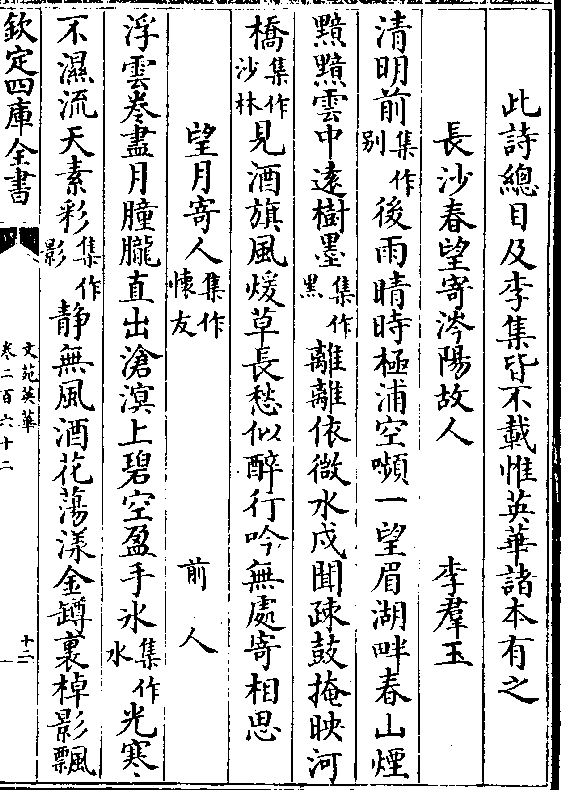 此詩總目及李集皆不載惟英華諸本有之
長沙春望寄涔陽故人 李羣玉
清明前集作别後雨晴時極浦空嚬一望眉湖畔春山煙
黯黯雲中逺樹墨集作黑離離依微水戍聞疎鼓掩映河
橋集作沙林見酒旗風煖草長愁似醉行吟無處寄相思
望月寄人集作懐友 前人
浮雲卷盡月朣朧直出滄溟上碧空盈手氷集作水光寒
不濕流天素彩集作影静無風酒花蕩漾金罇裏棹影飄
欽定四庫全書
文苑英華
卷二百六十二
十二